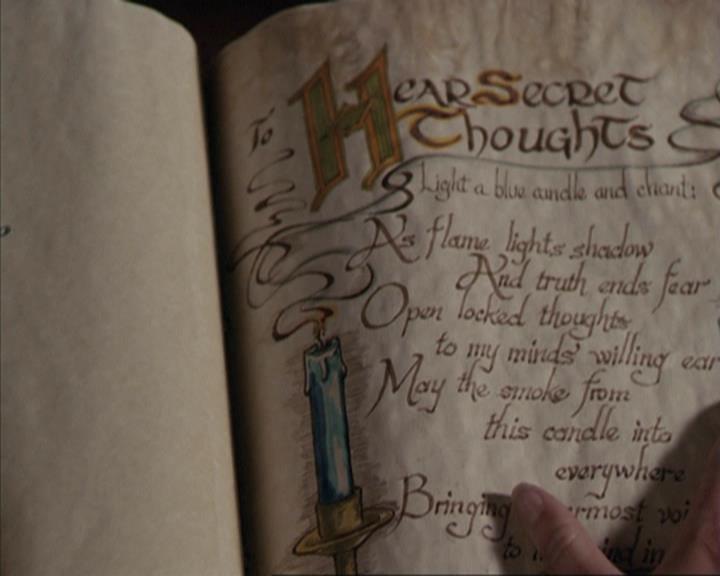 To Hear Secret
Thoughts
Light a blue candle and chant:
As flame lights shadow
And truth ends fear
Open locked thoughts
to my minds' willing ear
May the smoke from
this candle into
everywhere
Bringing
to in